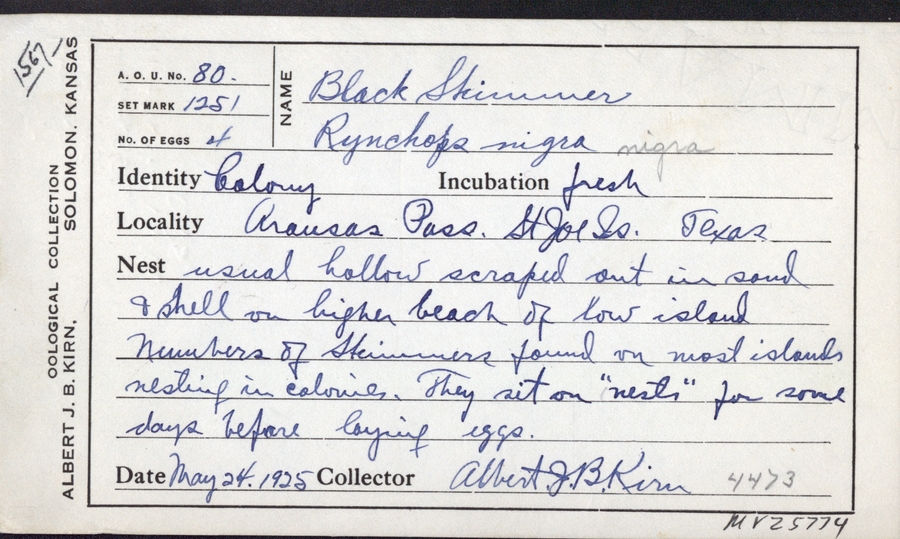 1567
OOLOGICAL COLLECTION
ALBERT J. B. KIRN, SOLOMON, KANSAS
A. O. U. No. 80.
SET MARK 1251
No. OF EGGS 4
NAME Black Skimmer
Rynchops nigra nigra
Identity Colony Incubation fresh
Locality Aransas Pass. St Joe Is. Texas
Nest usual hollow scraped out in sand
& shell on higher beach of low island
Numbers of Skimmers found on most islands
nesting in colonies. They sit on "nests" for some
days before laying eggs.
Date May 24. 1925 Collector Albert J. B. Kirn 4473
MVZ5774